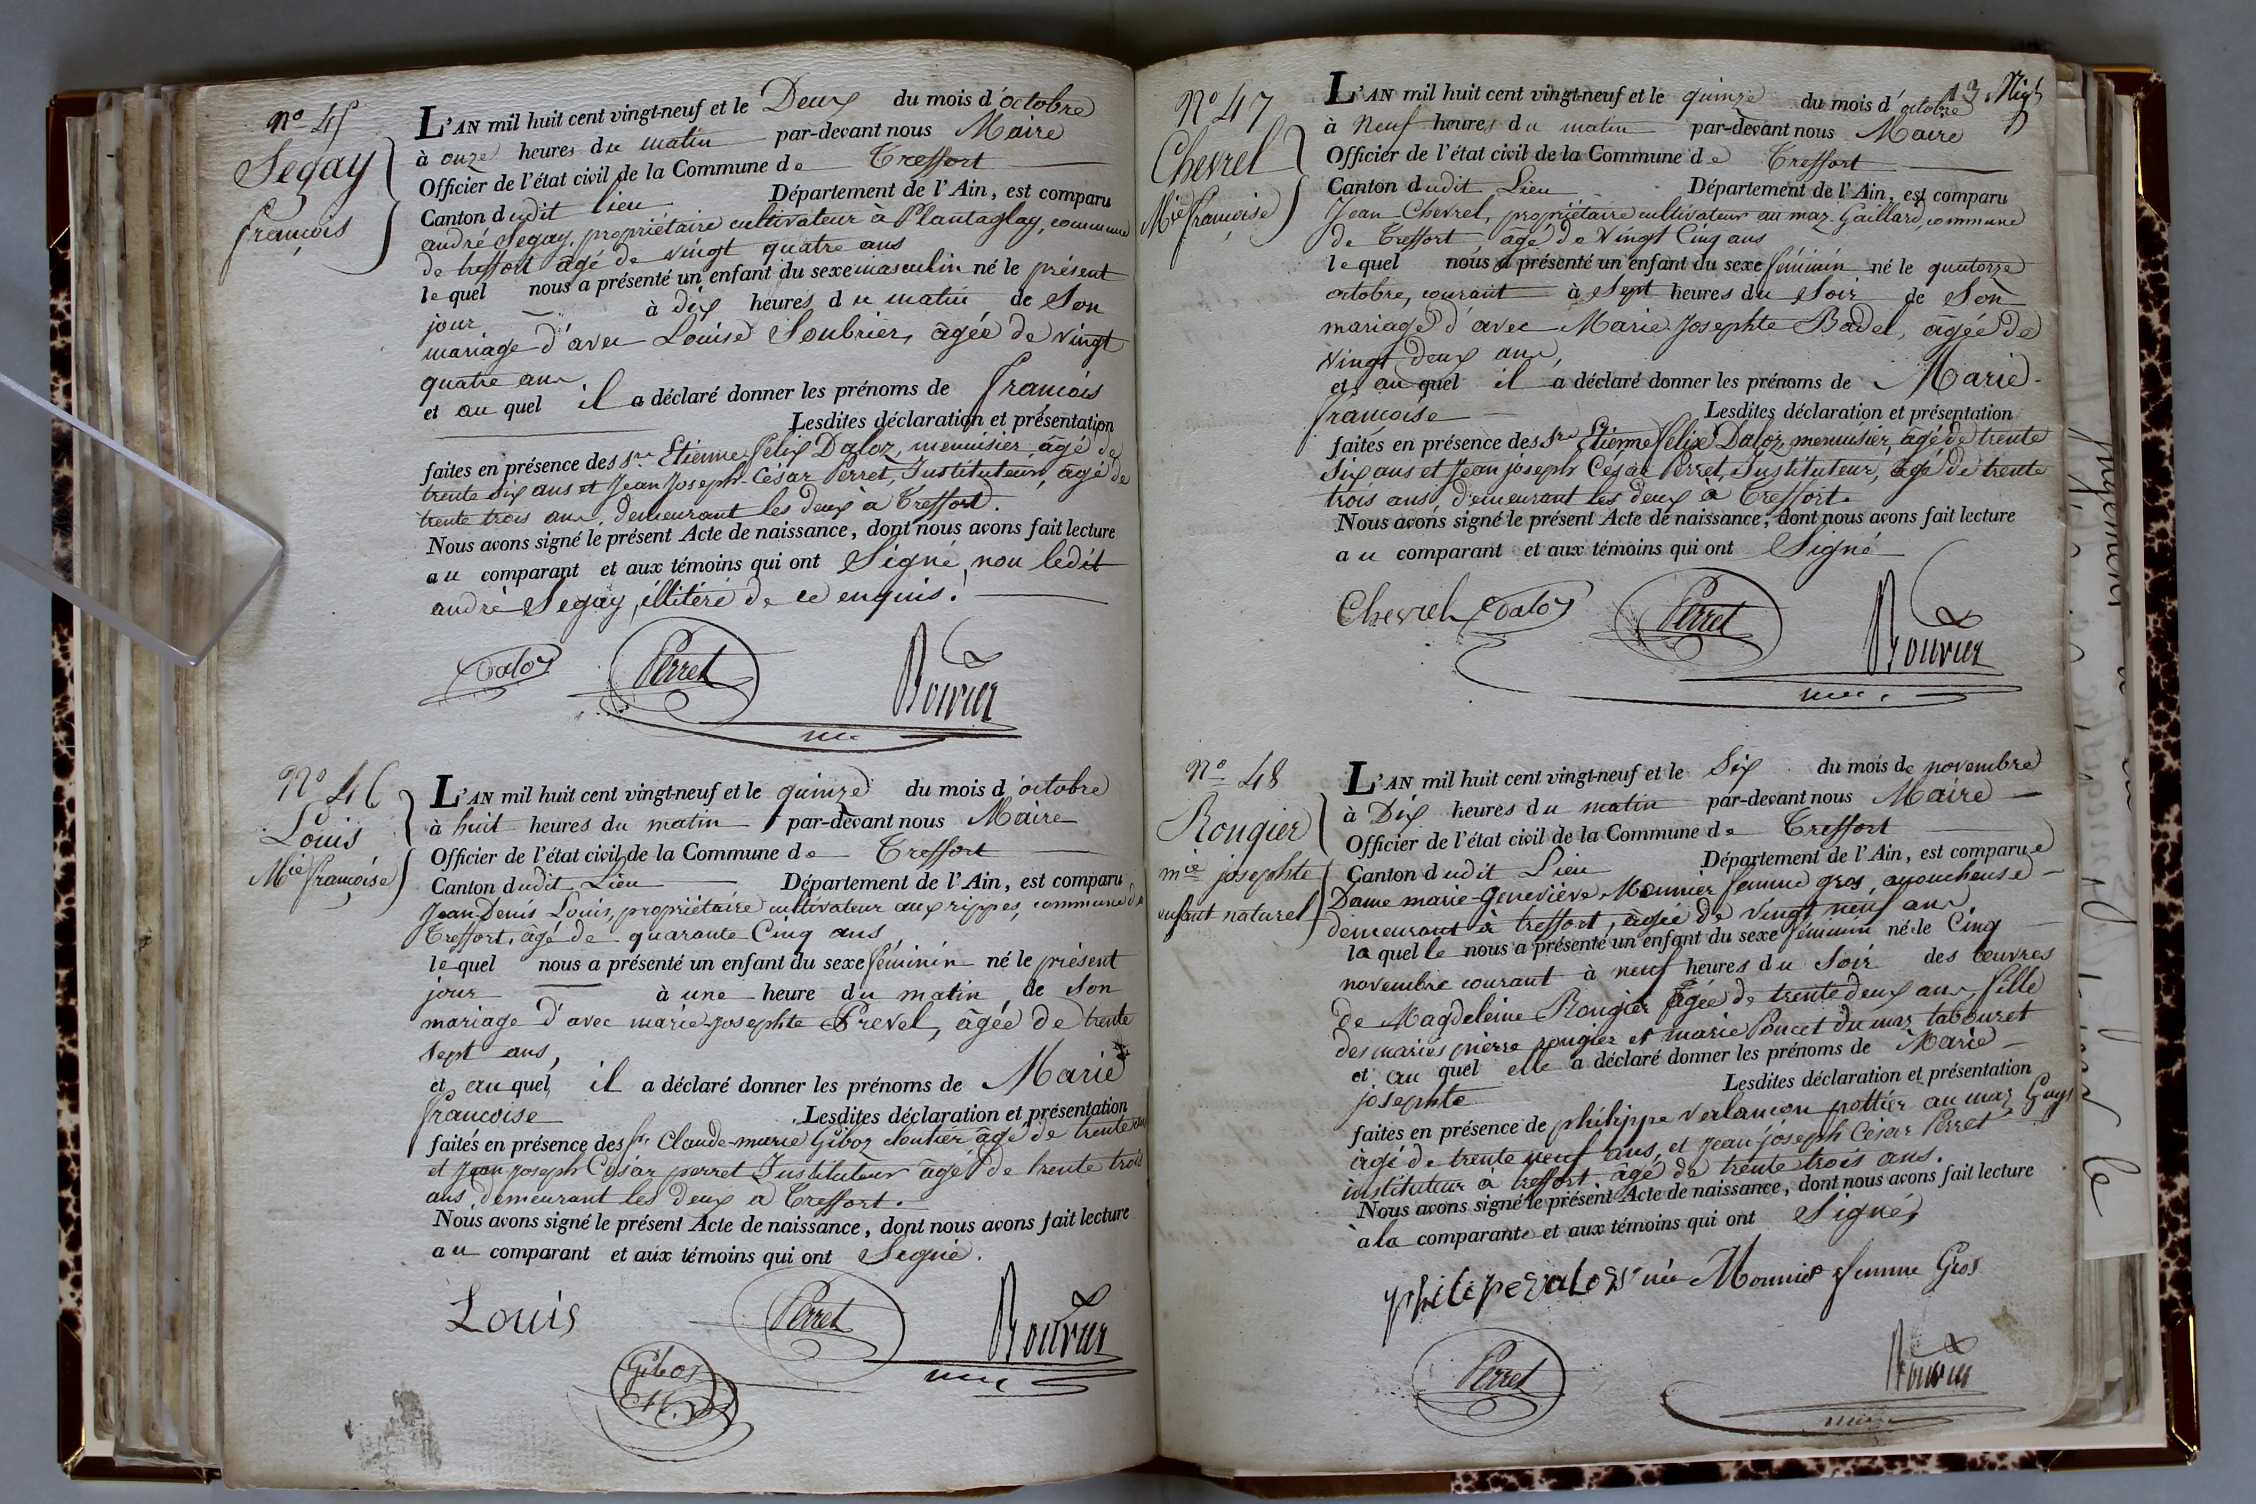 nº 45
Segay
françois
L'AN mil huit cent vingt-neuf et le Deux du mois d'octobre
à onze heures du matin par-devant nous Maire
Officier de l'état civil de la Commune de Treffort
Canton dudit lieu Département de l'Ain, est comparu
andré Segay, propriétaire cultivateur à Plantaglay, commune
de treffort âgé de vingt quatre ans
lequel nous a présenté un enfant du sexe masculin né le présent
jour à dix heures du matin de Son
mariage d'avec Louise Soubrier, âgée de vingt
quatre ans
et au quel il a déclaré donner les prénoms de françois
Lesdites déclaration et présentation
faites en présence des Srs Etienne félix Daloz, menuisier âgé de
trente six ans et Jean Joseph-César Perret, Instituteur, âgé de
trente trois ans, demeurant les deux à Treffort.
Nous avons signé le présent Acte de naissance, dont nous avons fait lecture
au comparant et aux témoins qui ont Signé, non ledit
andré Segay, illitéré de ce enquis.
Daloz Perret Bouvier
mre
Nº 46
Louis
Mie françoise
L'AN mil huit cent vingt-neuf et le quinze du mois d'octobre
à huit heures du matin par-devant nous Maire
Officier de l'état civil de la Commune de Treffort
Canton dudit Lieu Département de l'Ain, est comparu
Jean Denis Louis, propriétaire cultivateur aux rippes, commune de
Treffort, âgé de quarante Cinq ans
lequel nous a présenté un enfant du sexe féminin né le présent
jour à une heure du matin de Son
mariage d'avec marie-josephte Prevel, âgée de trente
sept ans,
et au quel, il a déclaré donner les prénoms de Marie
françoise Lesdites déclaration et présentation
faites en présence des Srs Claude-marie Giboz cloutier âgé de trente
et Jean-Joseph César perret Instituteur âgé de trente trois
ans, demeurant les deux à Treffort.
Nous avons signé le présent Acte de naissance, dont nous avons fait lecture
au comparant et aux témoins qui ont Signé.
Louis Perret Bouvier
mre
Giboz
Nº 47
Chevrel
Mie françoise
L'AN mil huit cent vingt-neuf et le quinze du mois d'octobre
à Neuf heures du matin par-devant nous Maire
Officier de l'état civil de la Commune de Treffort
Canton dudit Lieu Département de l'Ain, est comparu
Jean Chevrel, propriétaire cultivateur au maz Gaillard, commune
de Treffort, âgé de Vingt Cinq ans
lequel nous a présenté un enfant du sexe féminin né le quatorze
octobre, courant à Sept heures du Soir de Son
mariage d'avec Marie Josephte Badel, âgée de
vingt deux ans,
et au quel il a déclaré donner les prénoms de Marie-
françoise Lesdites déclaration et présentation
faites en présence des Srs Etienne felix Daloz menuisier, âgé de trente
six ans et Jean joseph César Perret, Instituteur, âgé de trente
trois ans, demeurant les deux à Treffort.
Nous avons signé le présent Acte de naissance, dont nous avons fait lecture
au comparant et aux témoins qui ont Signé
Chevrel Daloz Perret Bouvier
mre
Nº 48
Rougier
mie josephte
enfant naturel
L'AN mil huit cent vingt-neuf et le Six du mois de novembre
à Dix heures du matin par-devant nous Maire
Officier de l'état civil de la Commune de Treffort
Canton dudit Lieu Département de l'Ain, est comparue
Dame marie-Geneviève Monnier femme gros, acoucheuse
demeurant à treffort, âgée de vingt neuf ans.
laquelle nous a présenté un enfant du sexe féminin né le Cinq
novembre courant à neuf heures du Soir des œuvres
de Magdeleine Rougier âgée de trente deux ans, fille
des mariés pierre rougier et marie Poncet du maz tabouret
et au quel elle a déclaré donner les prénoms de Marie-
josephte Lesdites déclaration et présentation
faites en présence de philippe verlancon pottier au maz Guys
âgé de trente neuf ans, et Jean joseph César Perret
instituteur à treffort, âgé de trente trois ans.
Nous avons signé le présent Acte de naissance, dont nous avons fait lecture
à la comparante et aux témoins qui ont Signé,
née Monnier femme Gros
Perret Bouvier